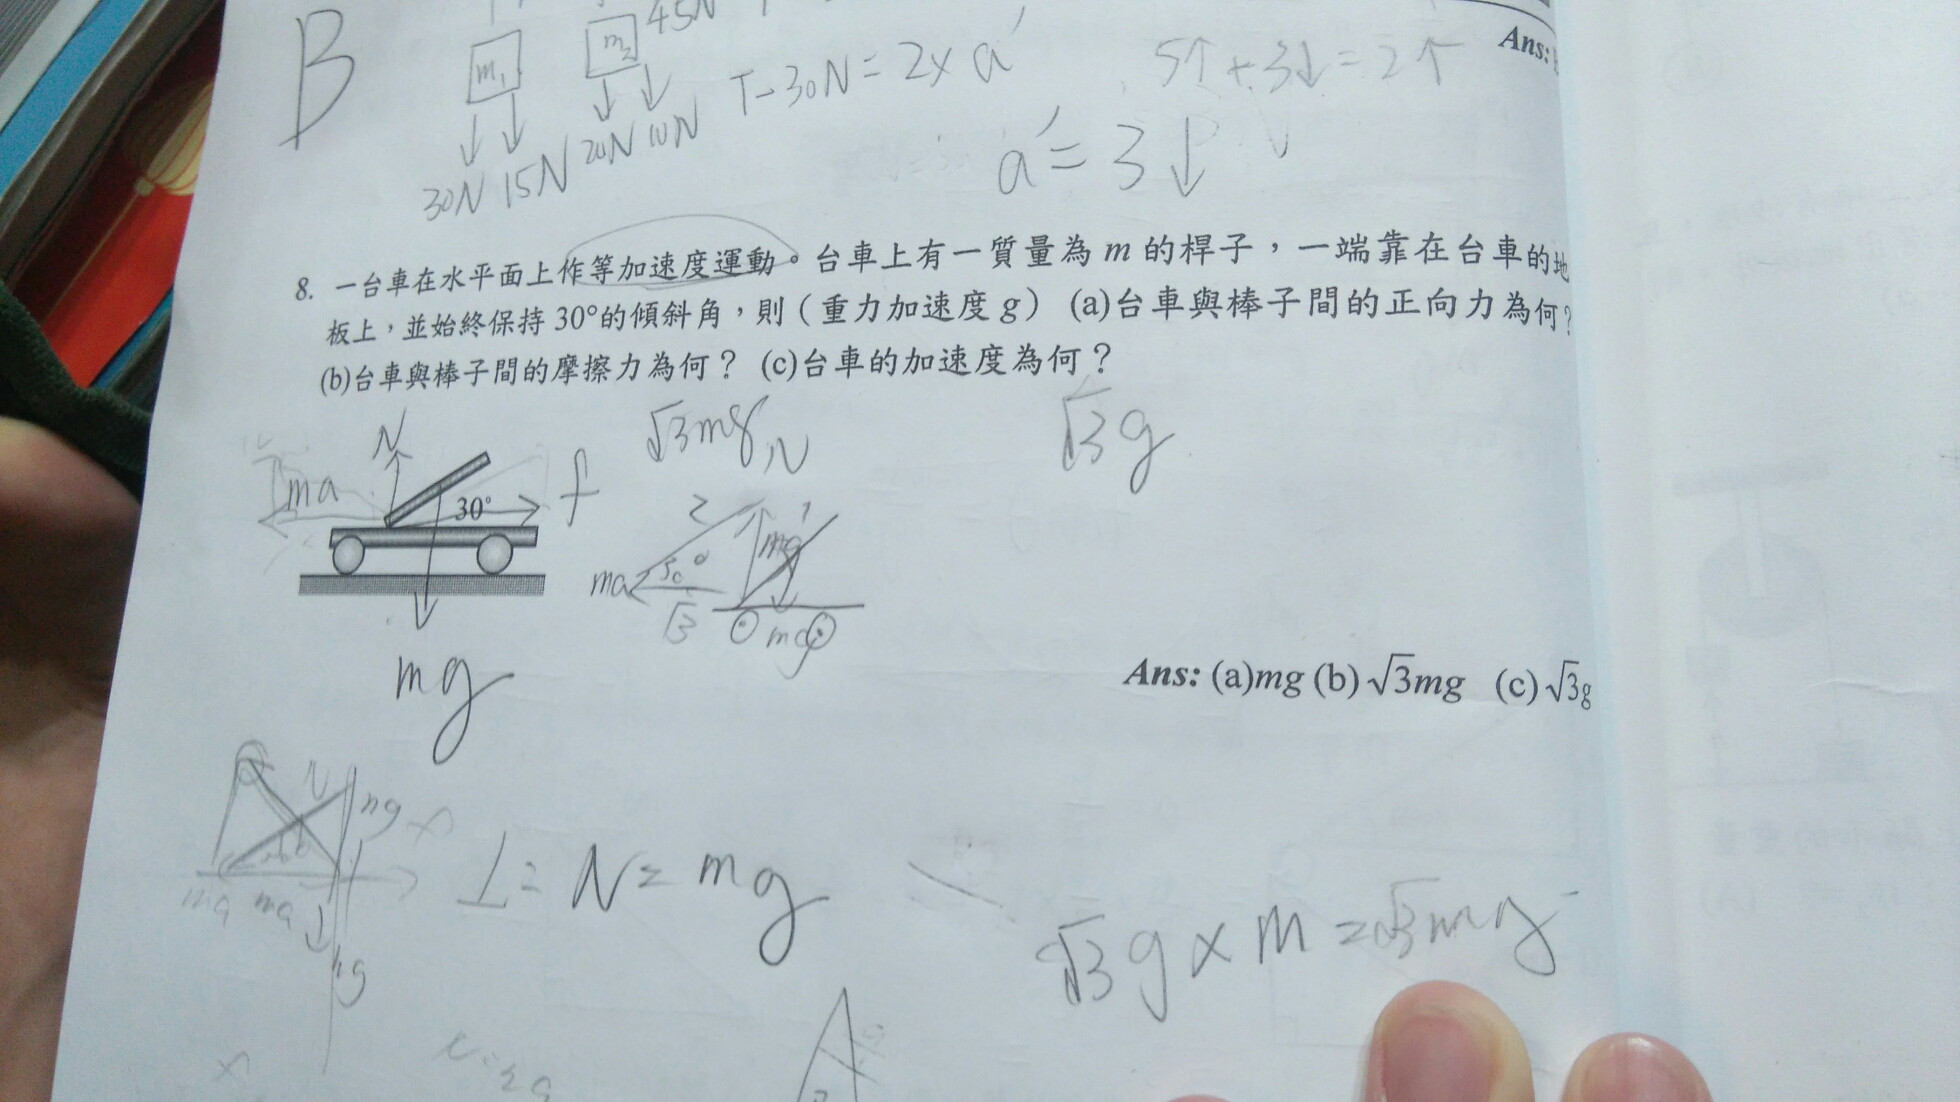 B
m₁
m₂ 45N
T-30N=2×a'
5↑+3↓=2↑
Ans:
30N 15N 20N 10N
a'=3↓
8. 一台車在水平面上作等加速度運動。台車上有一質量為 m 的桿子，一端靠在台車的地
板上，並始終保持 30°的傾斜角，則（重力加速度 g） (a)台車與棒子間的正向力為何？
(b)台車與棒子間的摩擦力為何？ (c)台車的加速度為何？
√3mg
√3g
N
N
ma
30°
f
2
1
mg
ma
30°
√3
mg
mg
Ans: (a)mg (b)√3mg (c)√3g
N
mg
ma ma
N=mg
√3g×m=√3mg